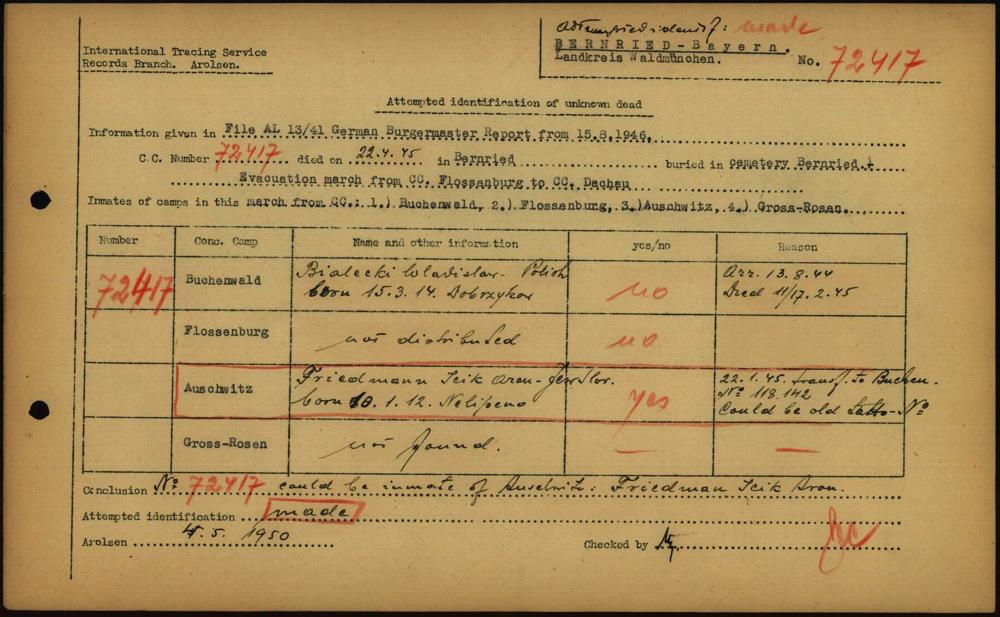 made
International Tracing Service
Records Branch. Arolsen.
BERNRIED-Bayern.
Landkreis Waldmünchen.
No. 72417
Attempted identification of unknown dead
Information given in File AL 13/41 German Burgermaster Report from 15.8.1946.
C.C. Number 72417 died on 22.4.45 in Bernried buried in cemetery Bernried.
Evacuation march from CC. Flossenburg to CC. Dachau
Inmates of camps in this march from CC.: 1.) Buchenwald, 2.) Flossenburg, 3.)Auschwitz, 4.) Gross-Rosen.
Number Conc. Camp Name and other information yes/no Reason
72417 Buchenwald Bialecki Wladislaw - Polish born 15.3.14. Dobrzykow no Arr. 13.8.44 Died 11/17.2.45
Flossenburg not distributed no
Auschwitz Friedmann Icik Aron - born 10.1.12. yes 22.1.45. transf. to Buchen. No 118.142 Could be old No
Gross-Rosen not found. — —
Conclusion No 72417 could be inmate of Auschwitz: Friedman Icik Aron.
Attempted identification made
Arolsen 4.5. 1950 Checked by